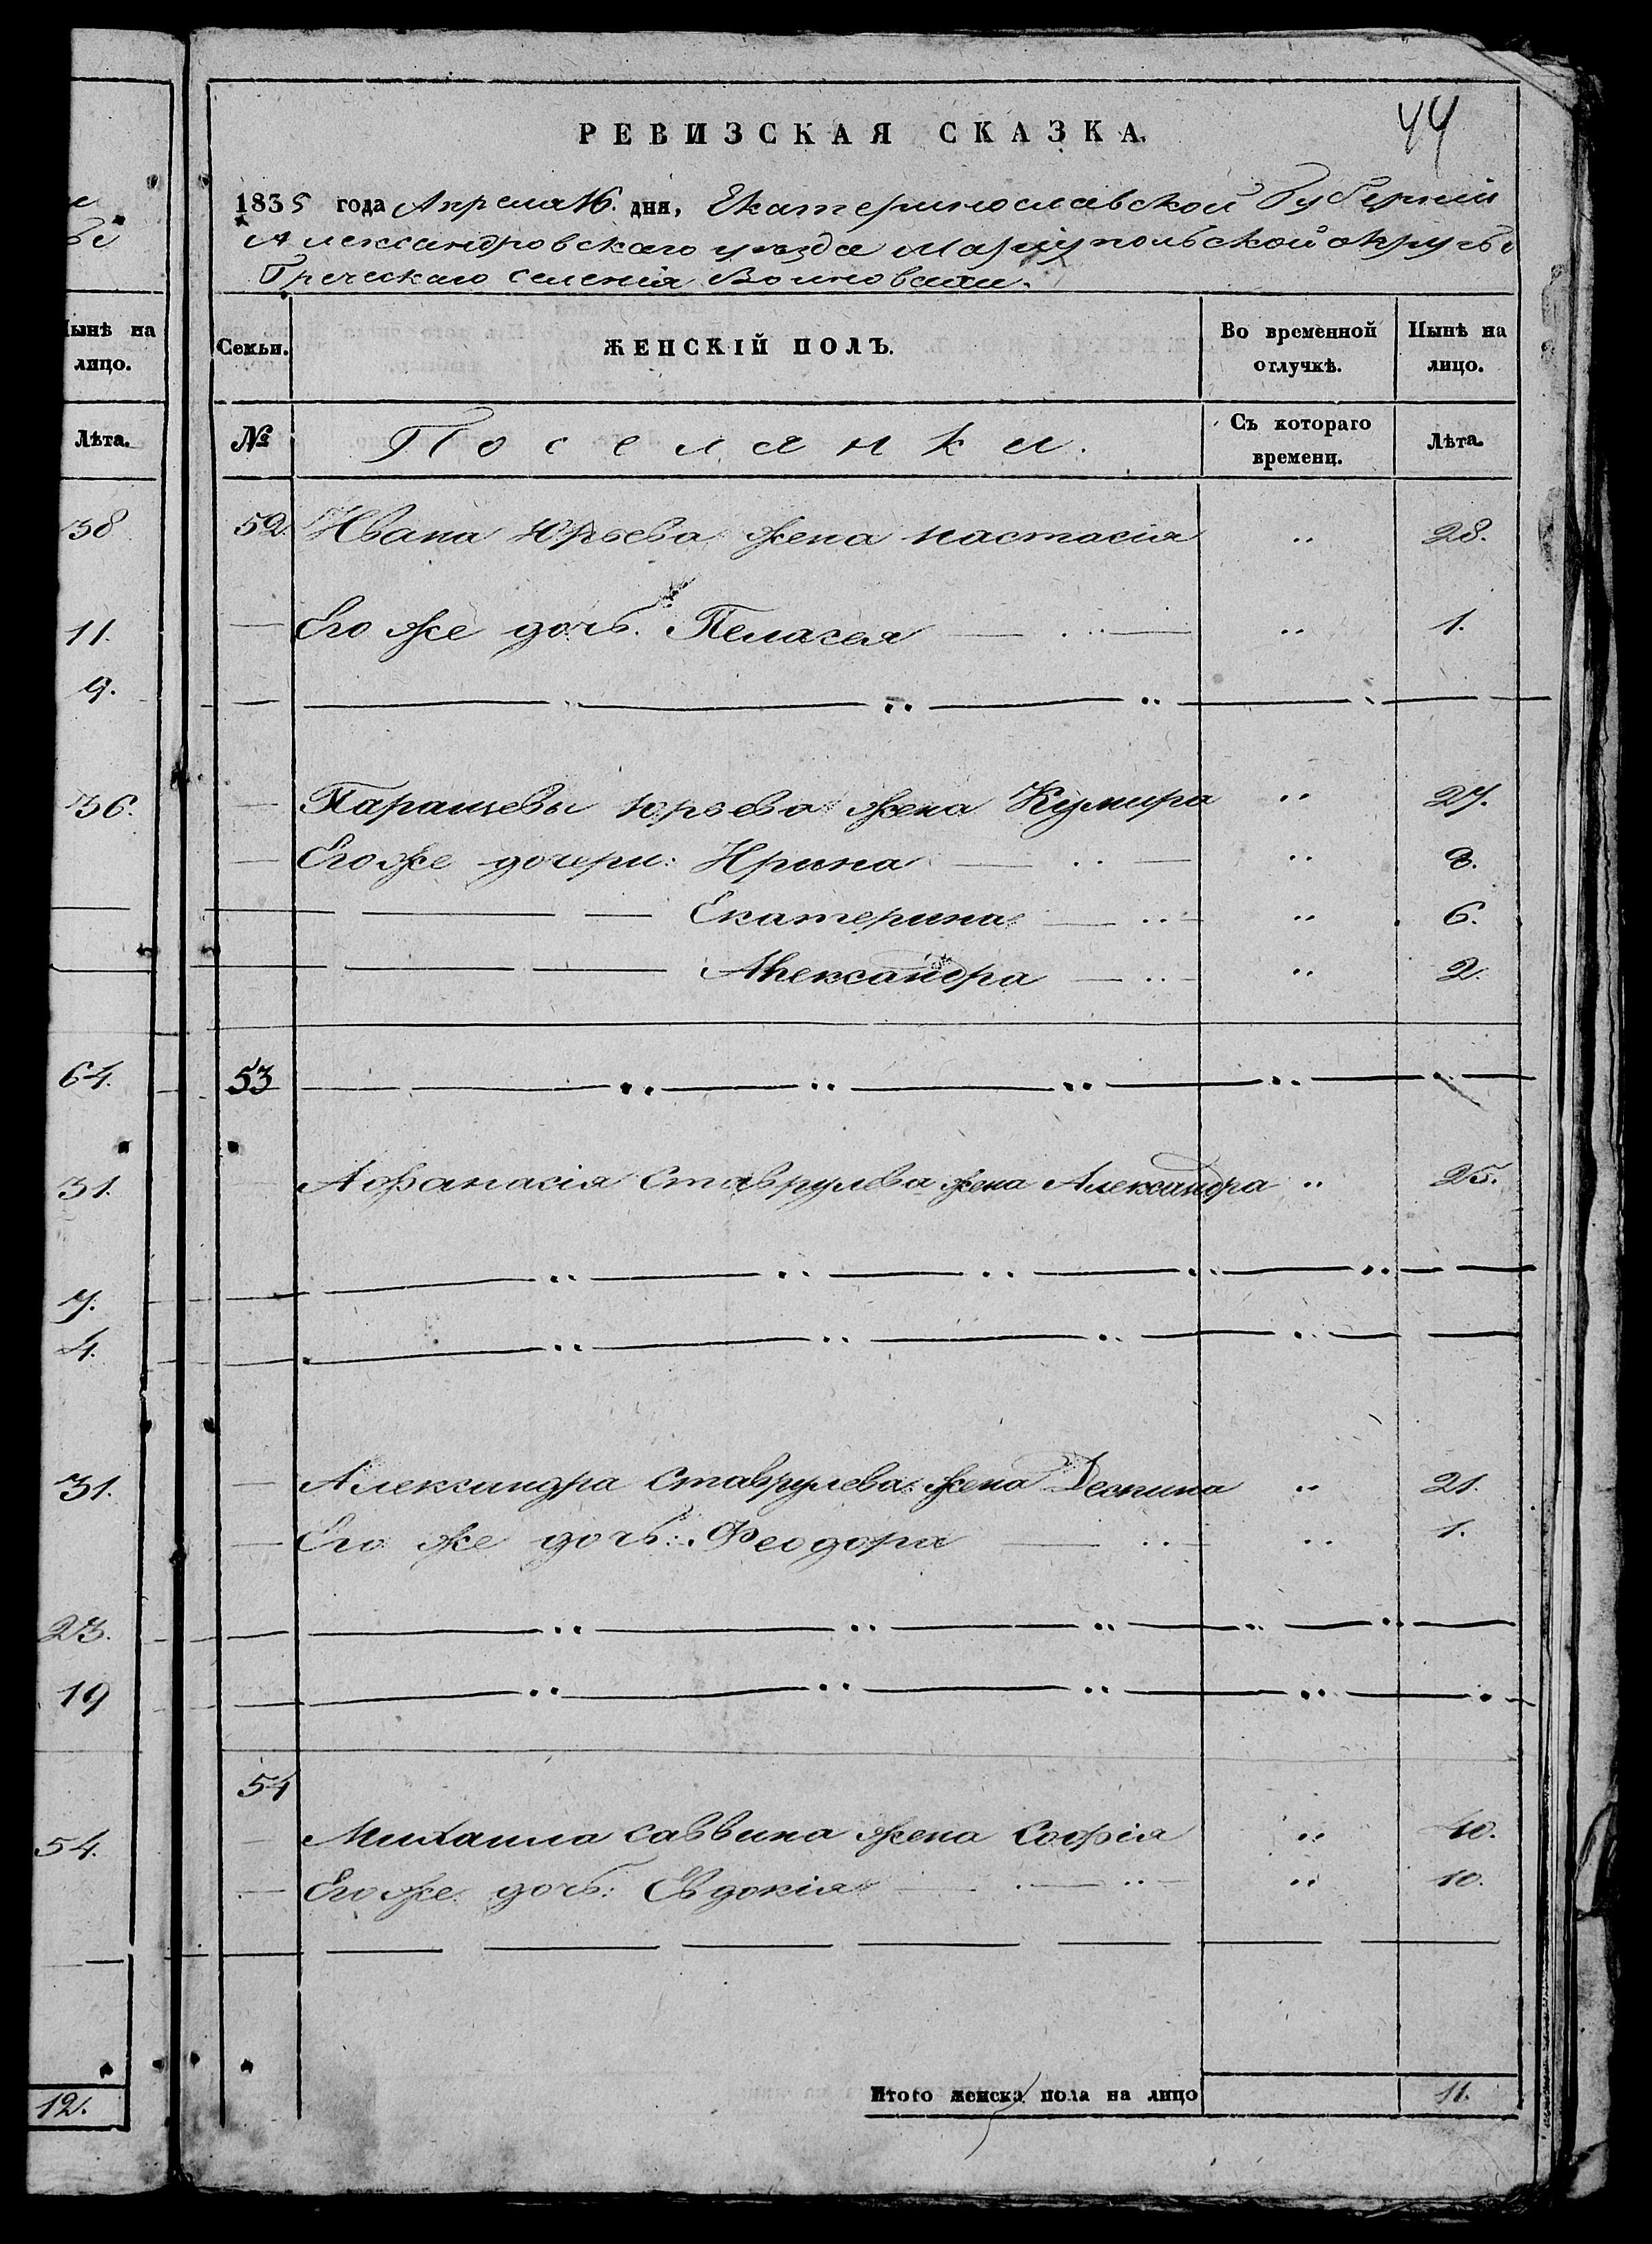 ыи
ве
Нынѣ на
лицо.
Лѣта.
38
11.
9.
36.
64.
31.
7.
4.
31.
23.
19
54.
12.
44
РЕВИЗСКАЯ СКАЗКА.
1835 года Апреля 16. дня, Екатеринославской Губернии
Александровскаго уезда Мариупольской округи
Греческаго селения
Семьи. ЖЕНСКІЙ ПОЛЪ. Во временной отлучкѣ. Нынѣ на лицо.
№ Поселянки. Съ котораго времени. Лѣта.
52 Ивана Юрьева жена настасія 28.
Его же дочь. Пелагея 1.
Парашевы Юрьева жена Кумира 27.
Его же дочери: Ирина 8.
Екатерина 6.
Александра 2.
53
Афанасія Ставрулева жена Александра 25.
Александра Ставрулева жена Деспина 21.
Его же дочь: Феодора 1.
54
Михаила саввина жена Софія 40.
Его же дочь: Евдокія 10.
Итого женска пола на лицо 11.